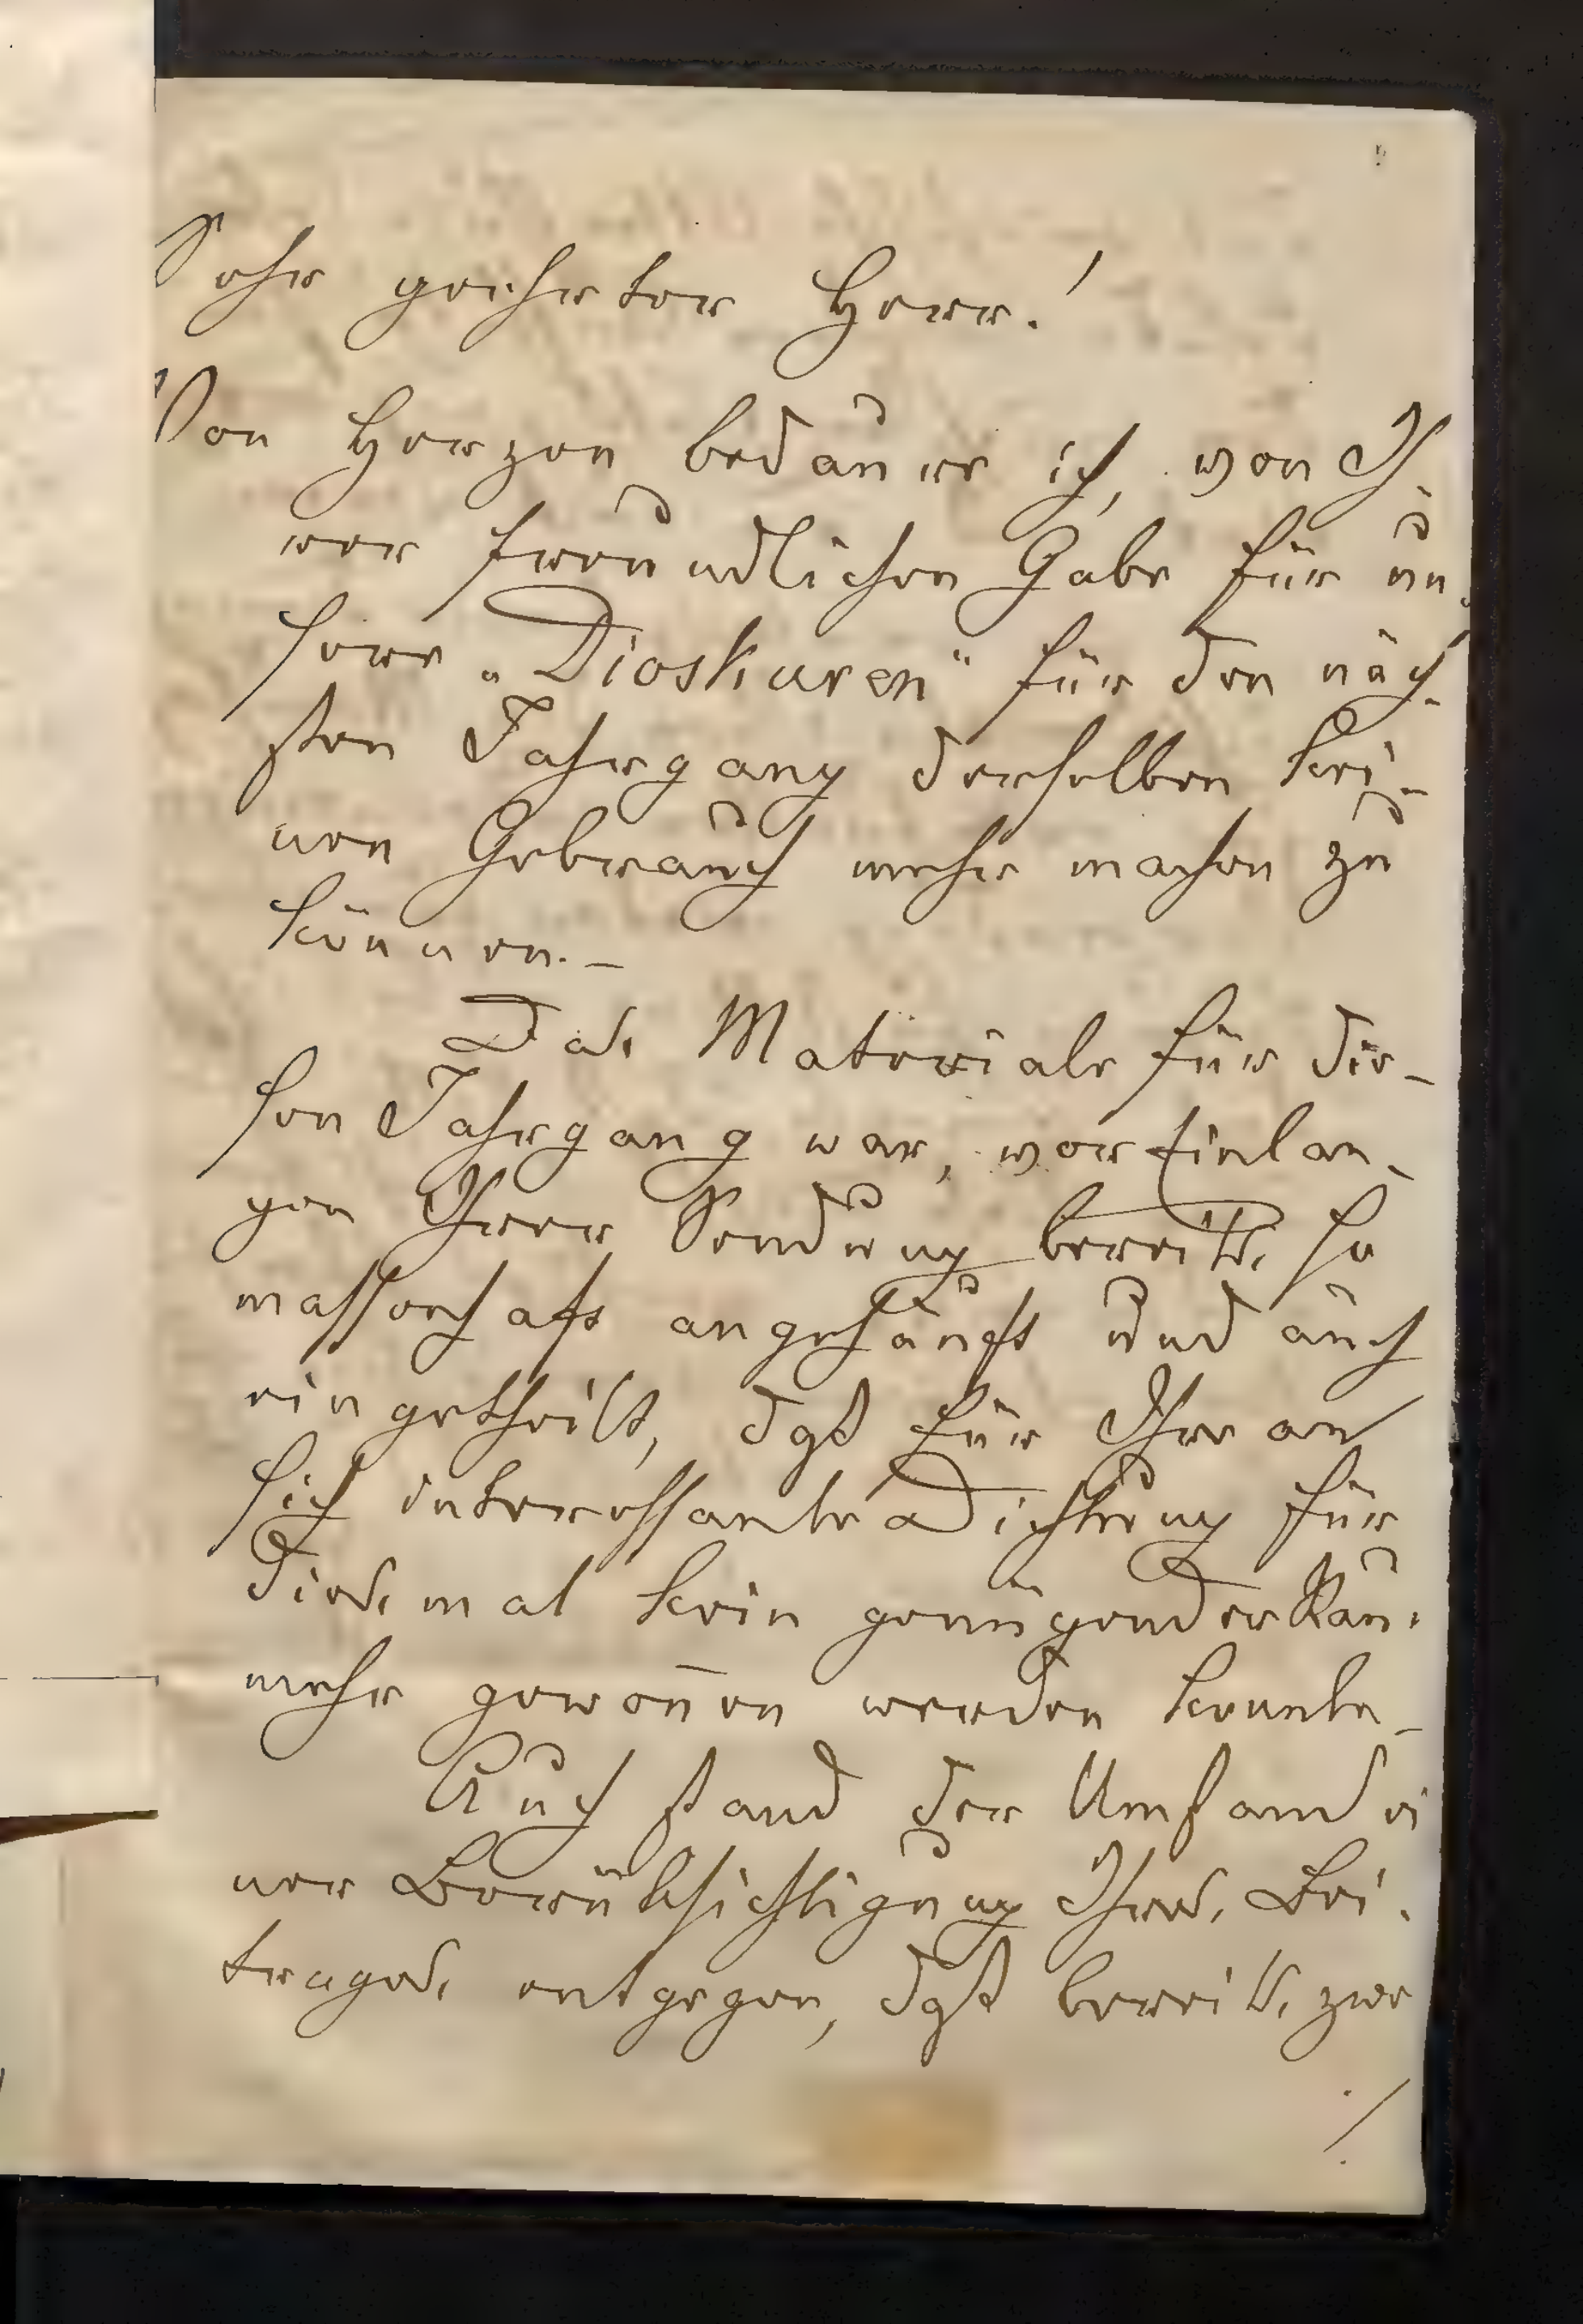 Sehr geehrter Herr!
Von Herzen bedaure ich, von Ih-
rer freundlichen Gabe für un-
sere „Dioskuren“ für den näch-
sten Jahrgang derselben kei-
nen Gebrauch mehr machen zu
können. –
Das Materiale für die-
sen Jahrgang war, vor Einlan-
gen Ihrer Sendung bereits so
massenhaft angehäuft und auch
eingetheilt, daß für Ihre an
sich interessante Dichtung für
diesmal kein genügender Raum
mehr gewon̄en werden konnte –
Auch stand der Umstand ei
ner Berücksichtigung Ihres Bei-
trages entgegen, daß bereits zwe
./.